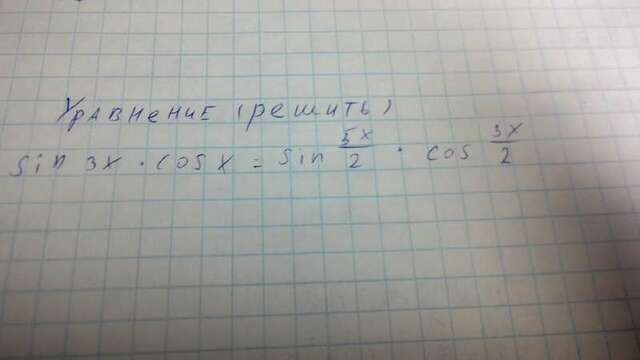 Уравнение (решить)
sin 3x · cos x = sin 5x/2 · cos 3x/2